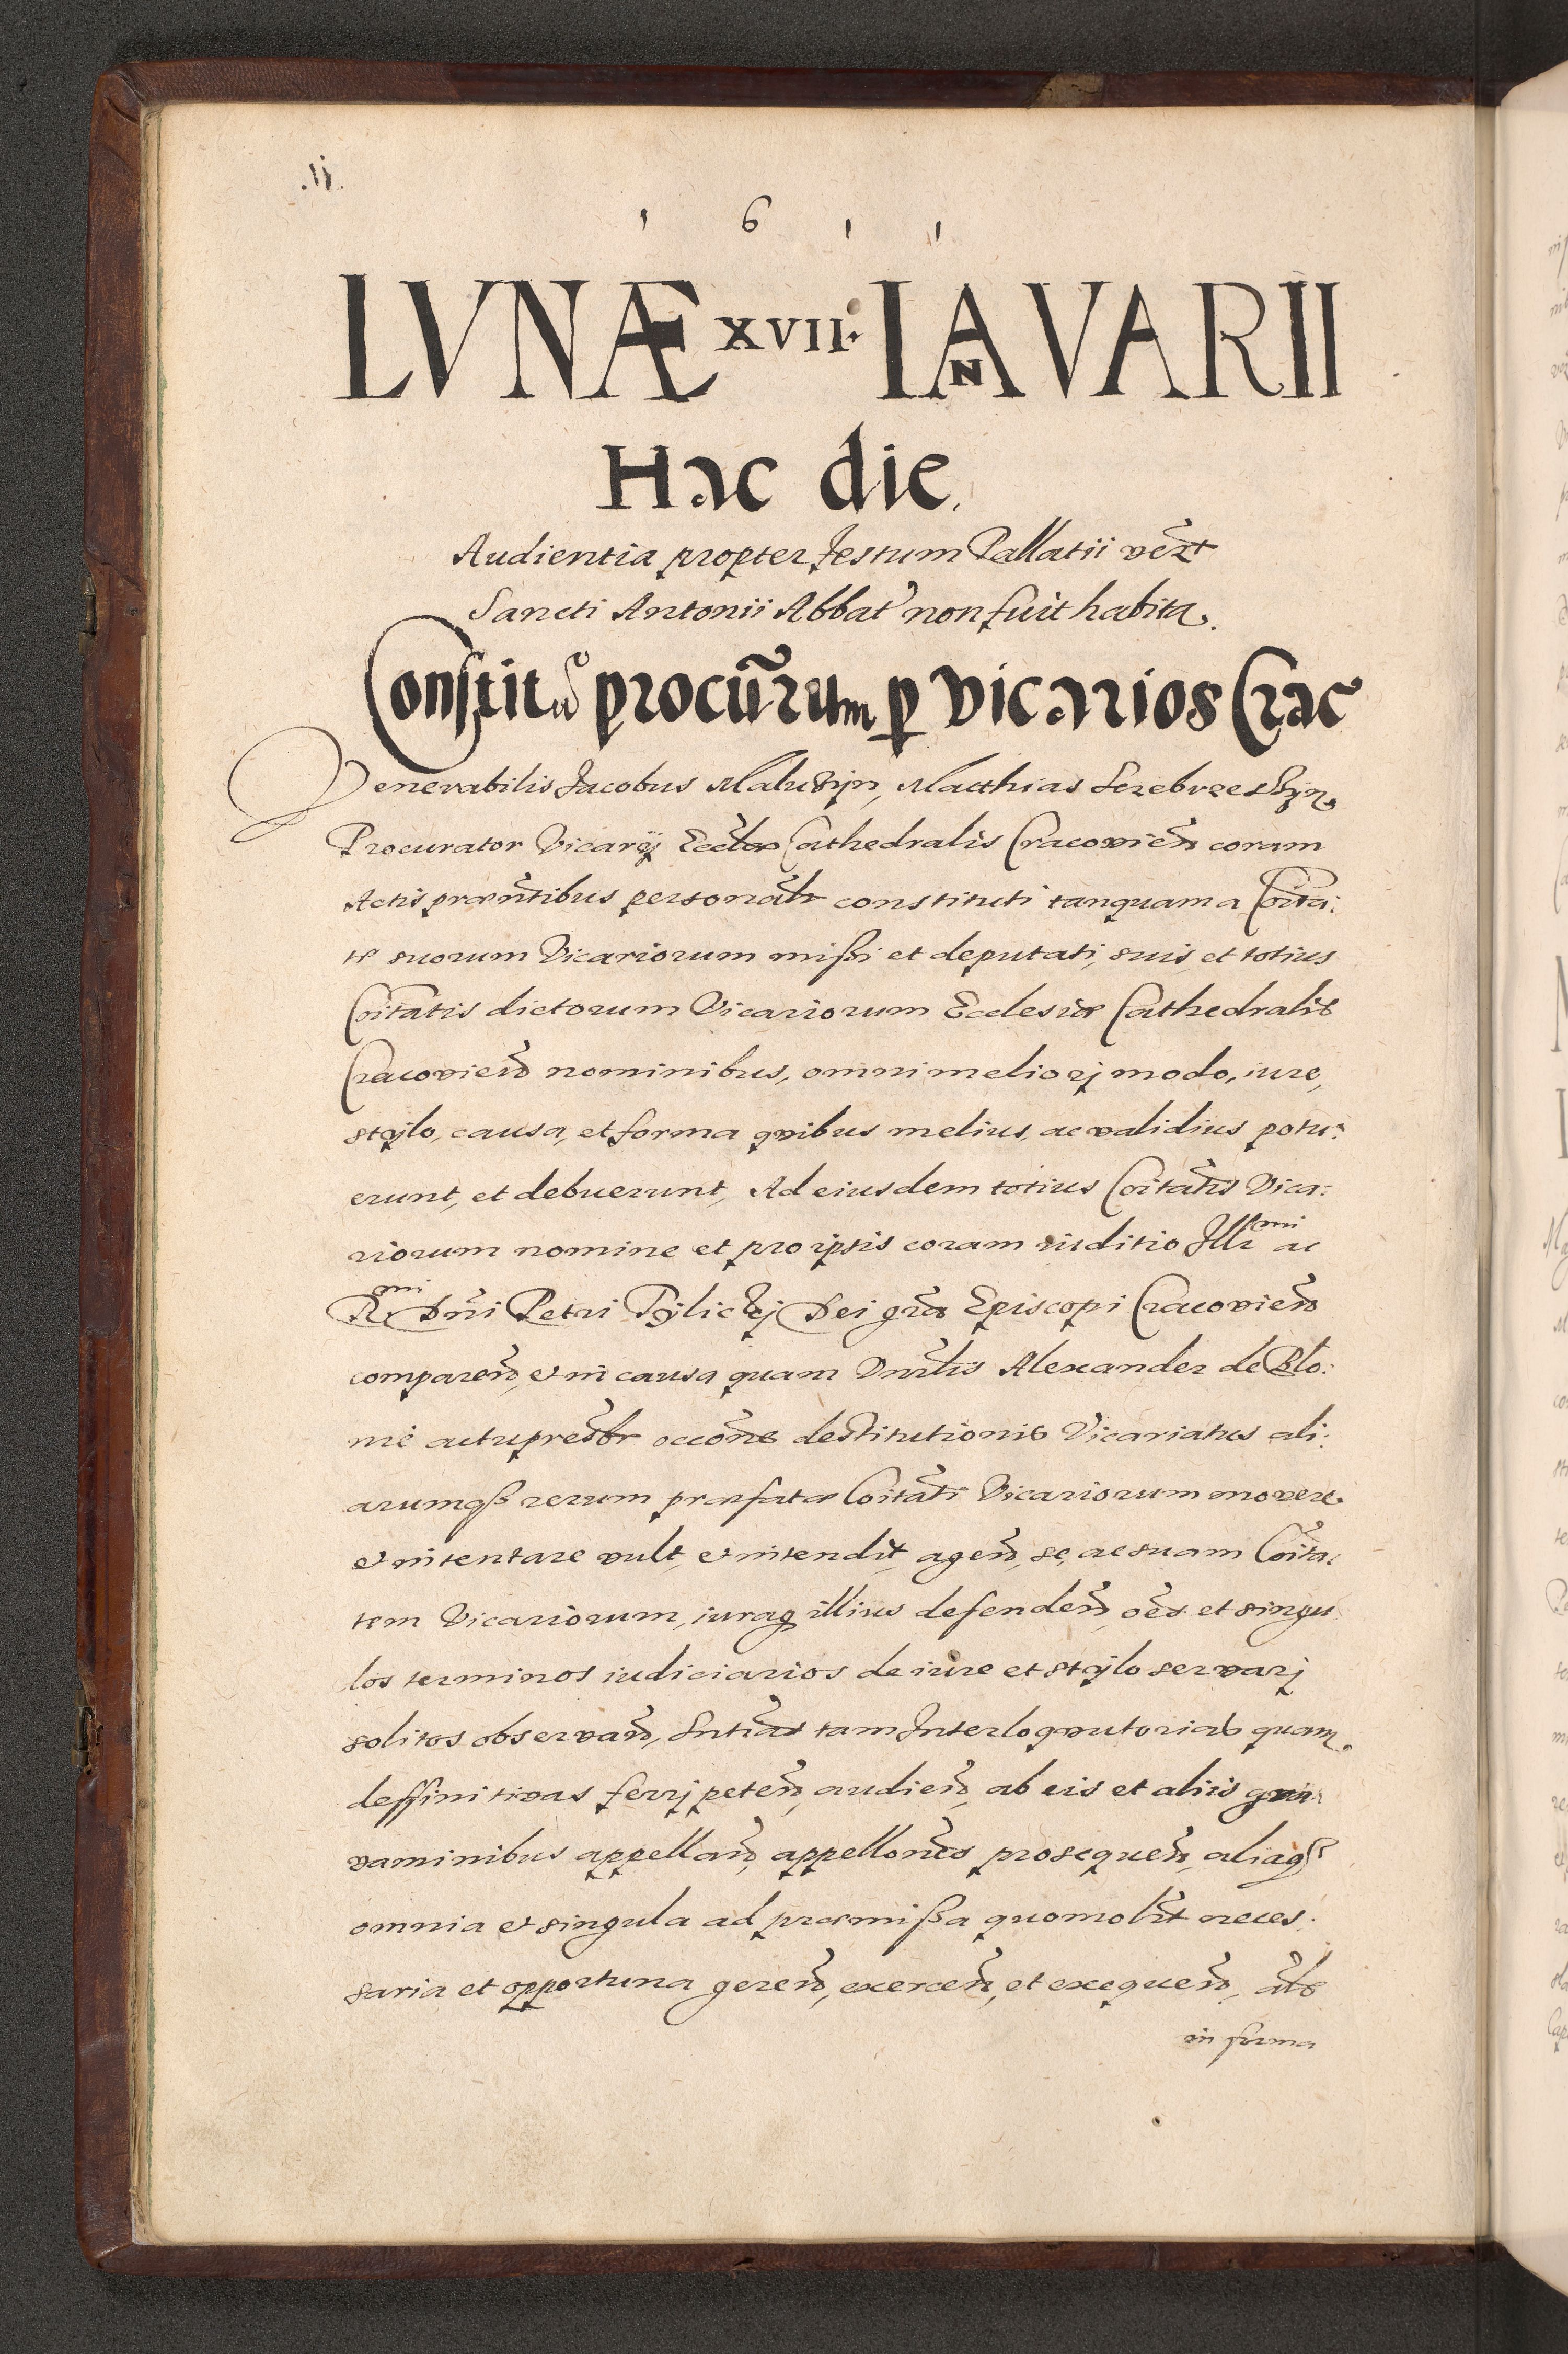 .ii.
1 6 1 1
LVNÆ XVII. IANVARII
Hac die.
Audientia propter festum Pallatii vezt
Sancti Antonii Abbat non fuit habita.
Constitũ procũrum p vicarios Crac
Venerabilis Jacobus Maluskÿn, Matthias
Procurator Vicarÿ Eccłæ Cathedralis Cracovień coram
Actis præntibus personalr constituti tanquam a Coitã:
te suorum Vicariorum mißi et deputati, suis, et totius
Coitatis dictorum Vicariorum Ecclesiæ Cathedralis
Cracovień nominibus, omni meliorj modo, iure,
stÿlo, causa, et forma quibus melius, ac validius potu:
erunt, et debuerunt, Ad eiusdem totius Coitatis Vica:
riorum nomine et pro ipsis coram iuditio Illrmi ac
Rmi Dñi Petri Tÿlickj Dei grã Episcopi Cracovień
compareñ, et in causa quam Alexander de Blo:
nie occõne destitutionis Vicariatus ali:
arumqß rerum præfatæ Coitati Vicariorum movere
et intentare vult, et intendit, ageñ, se, ac suam Coita:
tem Vicariorum, iuraq illius defendeñ, oẽs et singu
los terminos iudiciarios de iure et stÿlo servarj
solitos observañ, Sntĩas tam Interloquutorias quam
deffinitivas ferrj peteñ, audieñ, ab eis et aliis gra:
vaminibus appellañ, appellones prosequeñ, aliaqß
omnia et singula ad præmißa quomolbt neces:
saria et opportuna gereñ, exerceñ, et exequeñ, als
in forma